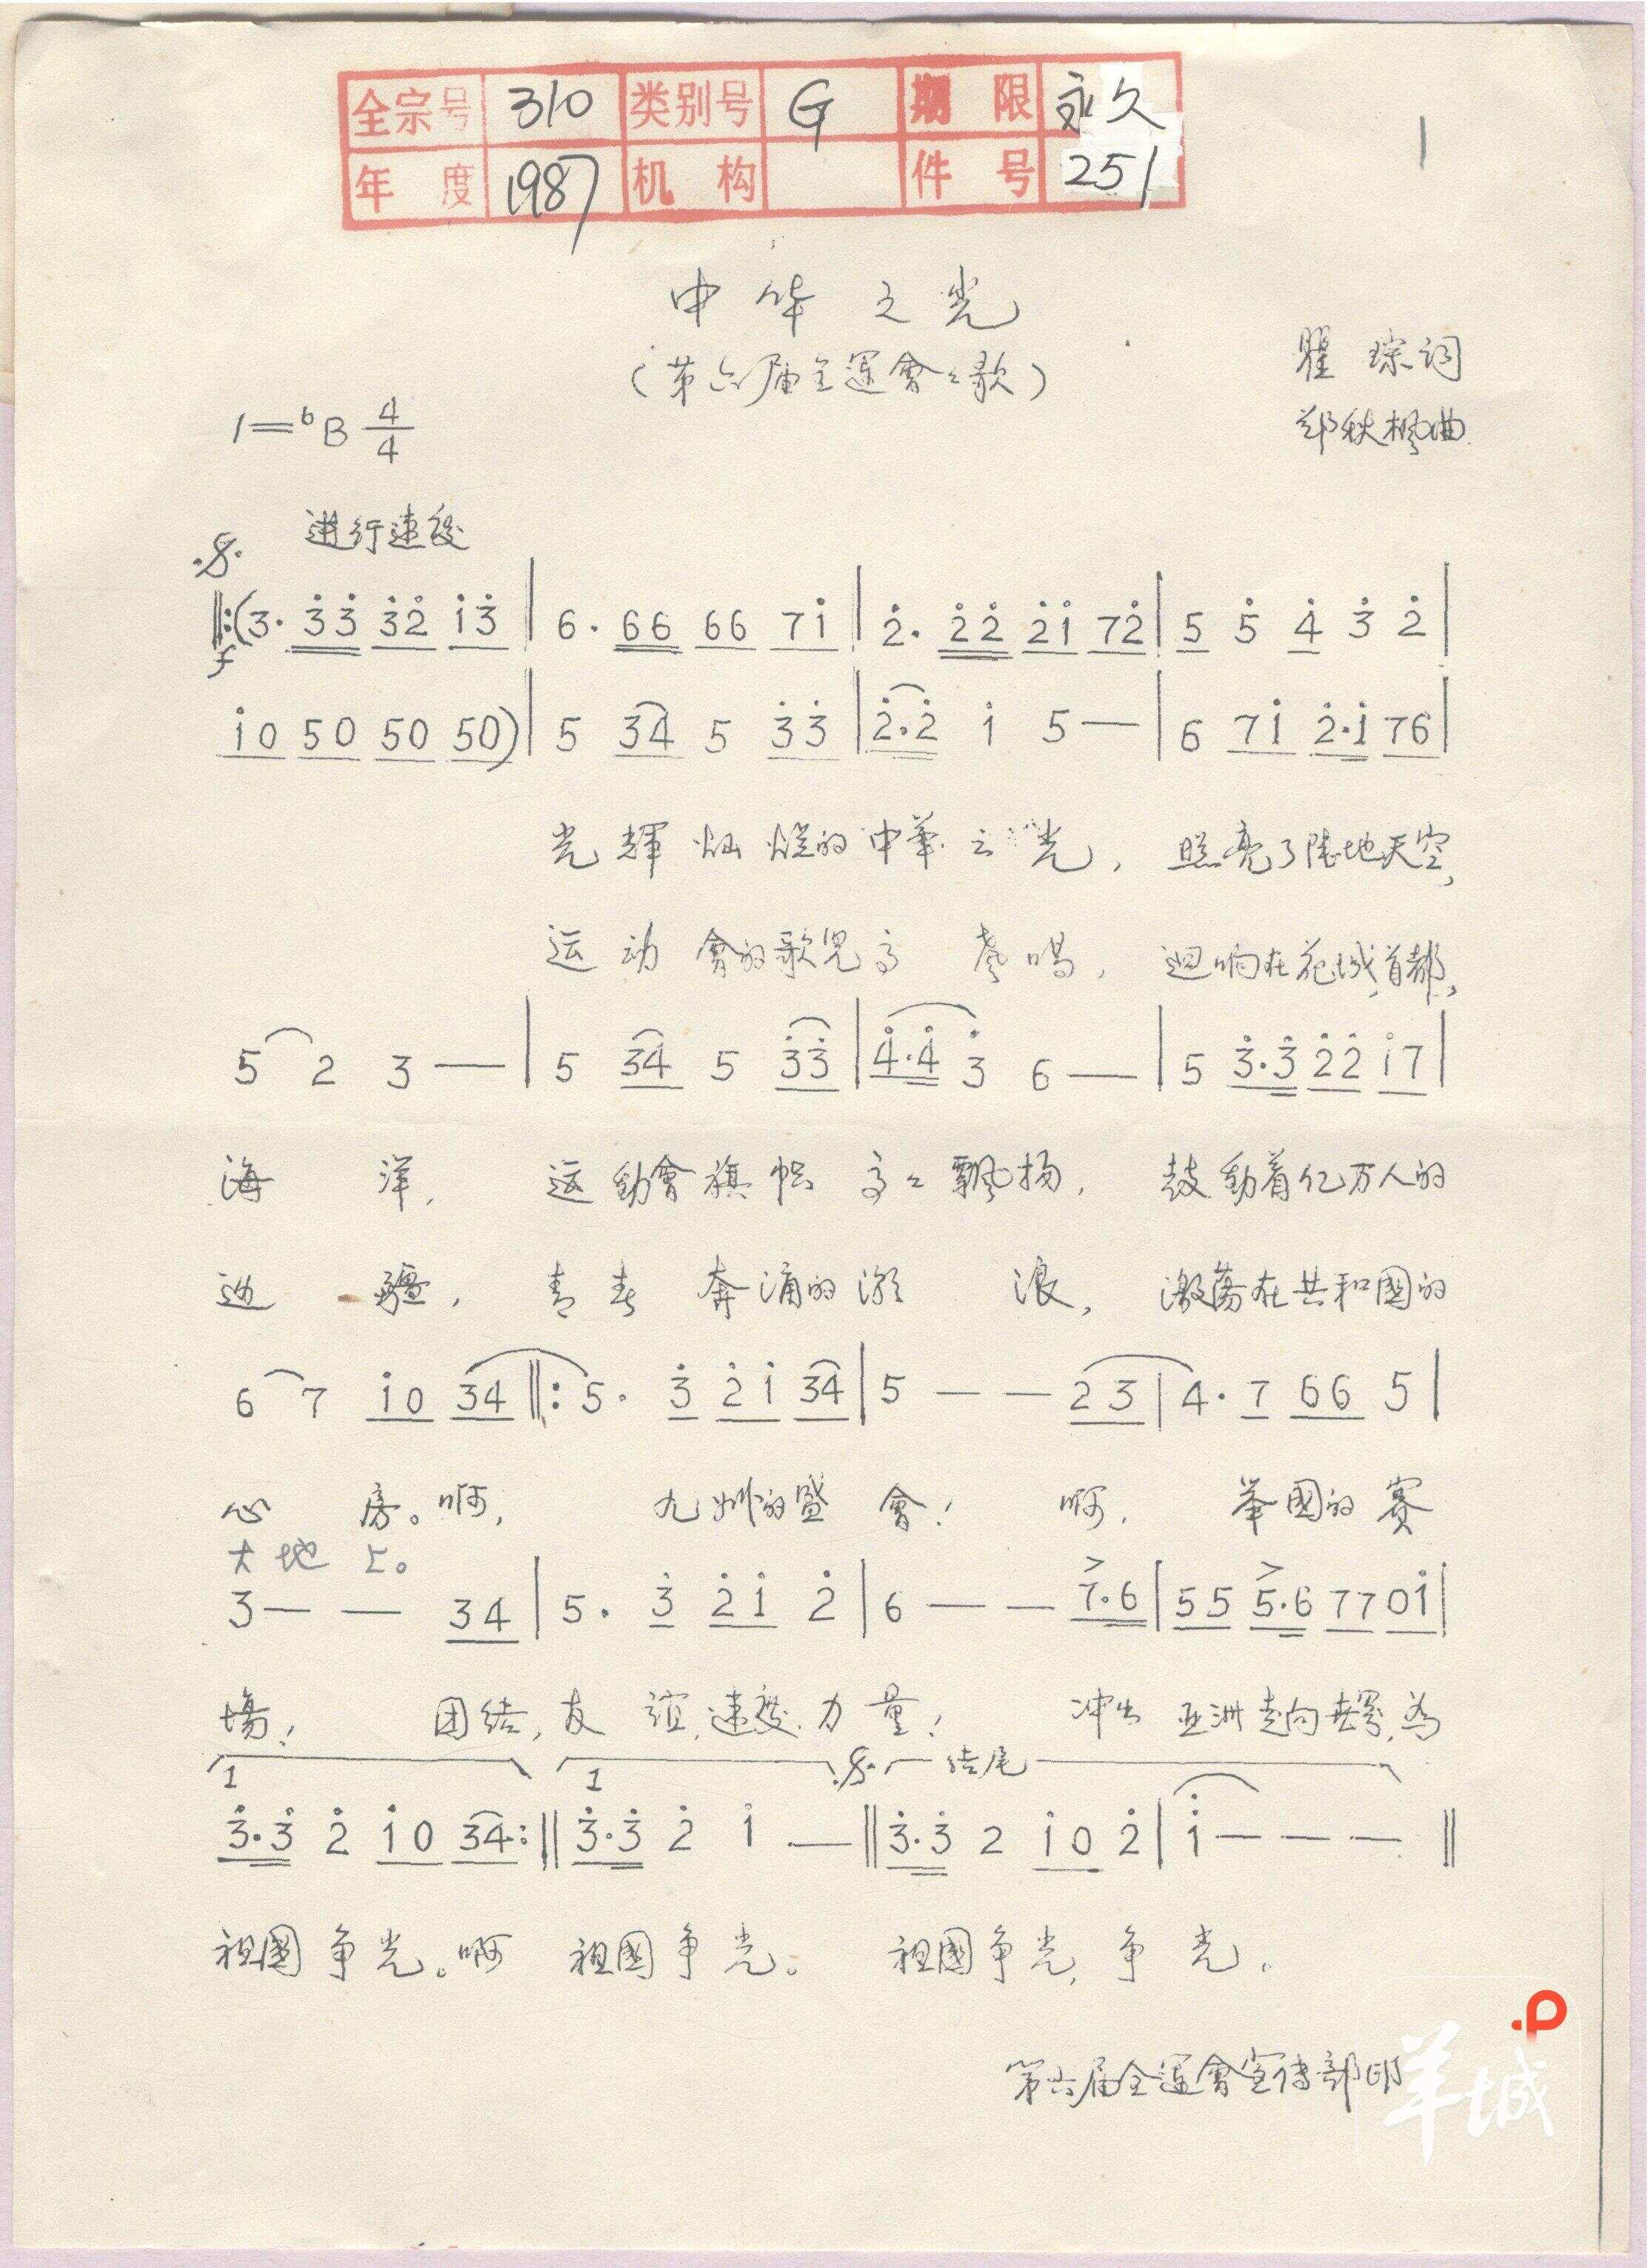 全宗号 310 类别号 G 期限 永久
年度 1987 机构 件号 251
1
中华之光
(第六届全運會之歌)
瞿琮词
1=♭B 4/4
郑秋枫曲
进行速度
𝄋
‖:(3· 3̇3̇ 3̇2̇ 1̇3̇ | 6· 66 66 71̇ | 2̇· 2̇2̇ 2̇1̇ 72̇ | 5 5̇ 4̇ 3̇ 2̇ |
f
1̇0 50 50 50) | 5 34 5 3̇3̇ | 2̇·2̇ 1̇ 5 — | 6 71̇ 2̇·1̇ 76 |
光輝灿烂的中華之光, 照亮了陆地天空,
运动會的歌児高声唱, 迴响在花城,首都,
5 2 3 — | 5 34 5 3̇3̇ | 4̇·4̇ 3̇ 6 — | 5 3̇·3̇ 2̇2̇ 1̇7 |
海洋, 运動會旗帜高々飘扬, 鼓動着亿万人的
边疆, 青春奔涌的激浪, 激荡在共和國的
6 7 1̇0 34 ‖: 5· 3̇ 2̇1̇ 34 | 5 — — 23 | 4· 7 66 5 |
心房。啊, 九州的盛會! 啊, 举國的赛
大地上。
3 — — 34 | 5· 3̇ 2̇1̇ 2̇ | 6 — — 7·6 | 55 5·6 77 01̇ |
場! 团结,友谊,速度,力量! 冲出亚洲走向世界,为
1 1 𝄋 结尾
3̇·3̇ 2̇ 1̇0 34 :‖ 3̇·3̇ 2̇ 1̇ — ‖ 3̇·3̇ 2 1̇0 2̇ | 1̇ — — — ‖
祖國争光。啊 祖國争光。 祖國争光,争光。
第六届全運會宣传部印
羊城